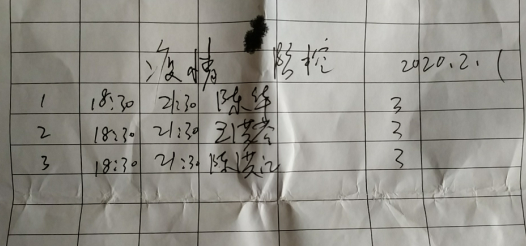 疫情 防控 2020.2.1
1 18:30 21:30 陈华 3
2 18:30 21:30 王洪 3
3 18:30 21:30 陈洪江 3